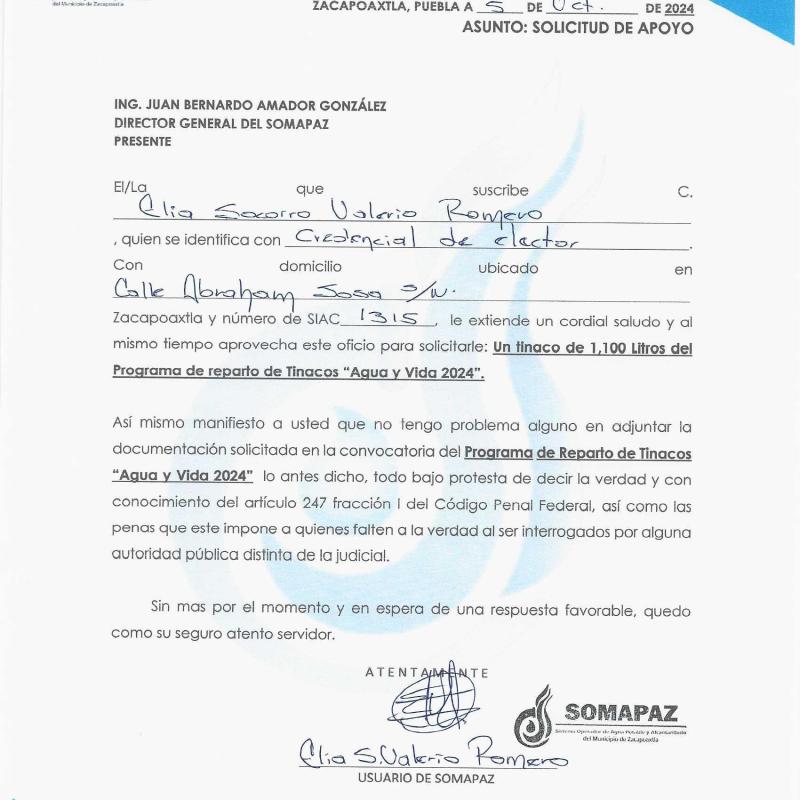 del Municipio de Zacapoaxtla
ZACAPOAXTLA, PUEBLA A 5 DE Oct. DE 2024
ASUNTO: SOLICITUD DE APOYO
ING. JUAN BERNARDO AMADOR GONZÁLEZ
DIRECTOR GENERAL DEL SOMAPAZ
PRESENTE
El/La que suscribe C.
Elia Socorro Valerio Romero
, quien se identifica con Credencial de elector.
Con domicilio ubicado en
Calle Abraham Sosa s/n.
Zacapoaxtla y número de SIAC 1315, le extiende un cordial saludo y al
mismo tiempo aprovecha este oficio para solicitarle: Un tinaco de 1,100 Litros del
Programa de reparto de Tinacos “Agua y Vida 2024”.
Así mismo manifiesto a usted que no tengo problema alguno en adjuntar la
documentación solicitada en la convocatoria del Programa de Reparto de Tinacos
“Agua y Vida 2024” lo antes dicho, todo bajo protesta de decir la verdad y con
conocimiento del artículo 247 fracción I del Código Penal Federal, así como las
penas que este impone a quienes falten a la verdad al ser interrogados por alguna
autoridad pública distinta de la judicial.
Sin mas por el momento y en espera de una respuesta favorable, quedo
como su seguro atento servidor.
ATENTAMENTE
SOMAPAZ
Sistema Operador de Agua Potable y Alcantarillado
del Municipio de Zacapoaxtla
Elia S. Valerio Romero
USUARIO DE SOMAPAZ